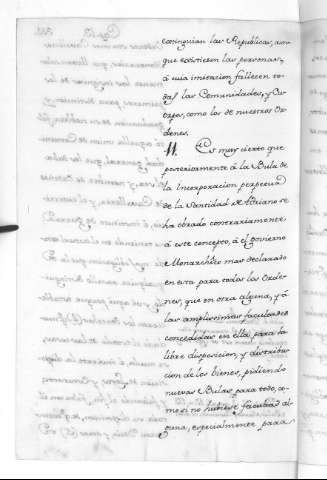 extinguian las Republicas, aun
que existiesen las personas,
á cuia imitacion fallecen to
das las Comunidades, y Cu
erpos, como los de nuestros Or
denes.
11. Es muy cierto que
posteriormente á la Bula de
la Incorporacion perpetua
de la Santidad de Adriano se
ha obrado contrariamente
á este concepto, á el Govierno
Monarchico mas declarado
en esta para todas las Orde
nes, que en otra alguna, y á
las amplissimas facultades
concedidas en ella para la
libre disposicion, y distribu
cion de los bienes, pidiendo
nuevas Bulas para todo, co
mo si no hubiese facultad al
guna, especialmente para